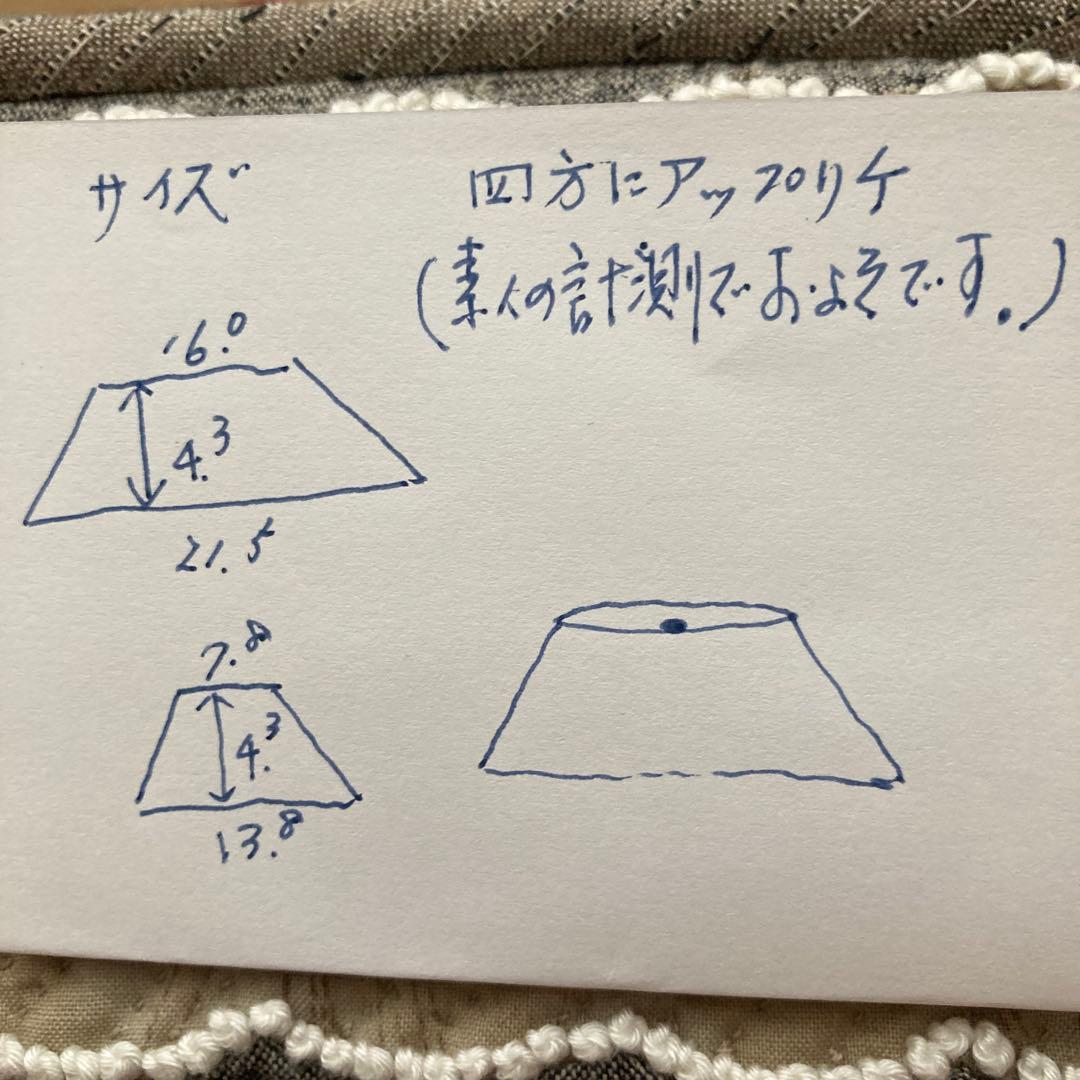 サイズ
四方にアップリケ
(素人の計測でおよそです。)
16.0
4.3
21.5
7.8
4.3
13.8